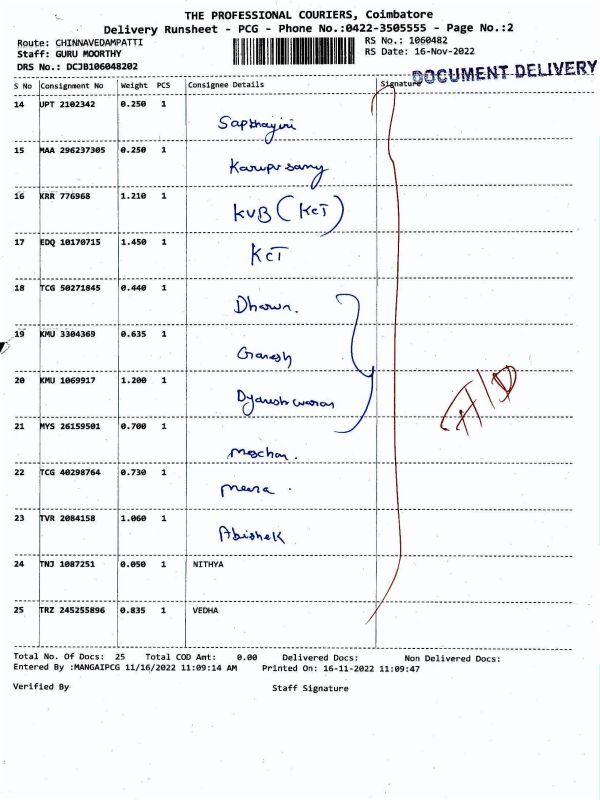 THE PROFESSIONAL COURIERS, Coimbatore
Delivery Runsheet - PCG - Phone No.:0422-3505555 - Page No.:2
Route: CHINNAVEDAMPATTI RS No.: 1060482
Staff: GURU MOORTHY RS Date: 16-Nov-2022
DRS No.: DCJB106048202
DOCUMENT DELIVERY
S No Consignment No Weight PCS Consignee Details Signature
14 UPT 2102342 0.250 1
Sapthagiri
15 MAA 296237305 0.250 1
Karupusamy
16 KRR 776968 1.210 1
KVB (KCT)
17 EDQ 10170715 1.450 1
KCT
18 TCG 50271845 0.440 1
19 KMU 3304369 0.635 1
Ganesh
20 KMU 1069917 1.200 1
Dyaneshwaran
21 MYS 26159501 0.700 1
22 TCG 40298764 0.730 1
meera
23 TVR 2084158 1.060 1
Abishek
24 TNJ 1087251 0.050 1 NITHYA
25 TRZ 245255896 0.835 1 VEDHA
Total No. Of Docs: 25 Total COD Amt: 0.00 Delivered Docs: Non Delivered Docs:
Entered By :MANGAIPCG 11/16/2022 11:09:14 AM Printed On: 16-11-2022 11:09:47
Verified By Staff Signature